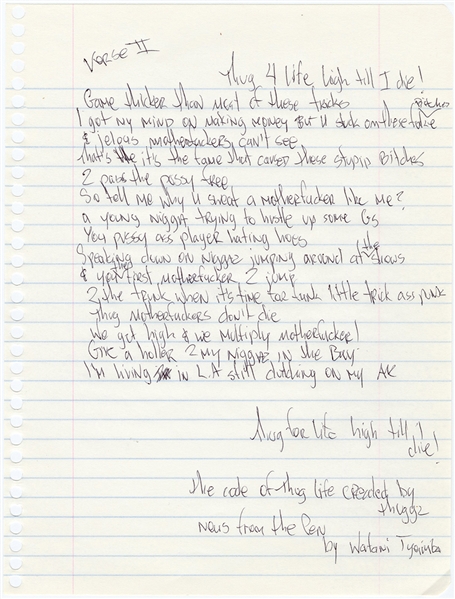 Verse II
Thug 4 life high till I die!
Game thicker than most of these tracks
I got my mind on making money But U stuck on these Bitches
& jelous motherfuckers can't see
that's it's the fame that caused these stupid Bitches
2 pass the pussy free
So tell me why U sweat a motherfucker like me?
a young nigga trying to hustle up some Gs
You pussy ass player hating hoes
Speaking down on niggaz jumping around at the shows
& your first motherfucker 2 jump
2 the trunk when it's time for funk little trick ass punk
Thug motherfuckers don't die
We get high & we multiply motherfucker!
Give a holler 2 my niggaz in the Bay
I'm living in L.A still clutching on my AK
Thug for life high till I
die!
the code of thug life created by
thuggz
news from the Pen
by Watani Tyehimba